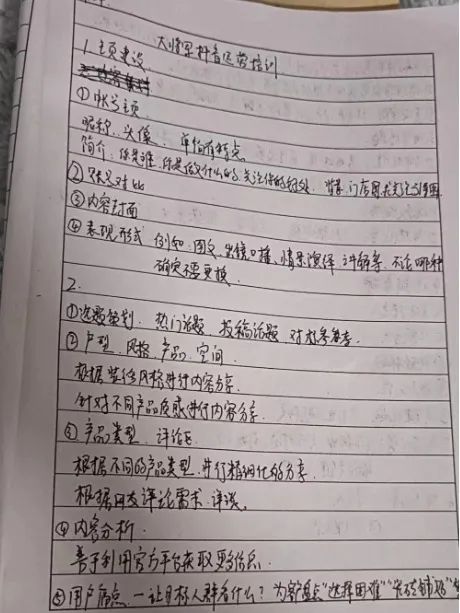 大将军抖音运营培训
1. 主页建设
①账号主页
昵称、头像、单怕有特点
简介：你是谁、你是做什么的、关注你的好处、背景：门店图
②账号对比
③内容封面
④表现形式 例如：图文、出镜口播、情景演绎 讲解等、不论哪种
确定不要更换
2.
①选题策划、热门话题 投稿话题 对标参考
②户型、风格、产品、空间
根据某任风格进行内容分享
针对不同产品质感进行内容分享
③产品类型、评论区
根据不同的产品类型、进行精细化的分享
根据网友评论需求、详谈。
④内容分析.
善于利用官方平台获取更多信息
⑤用户痛点、一让目标人群看什么？为客户"选择困难""瓷砖铺贴"